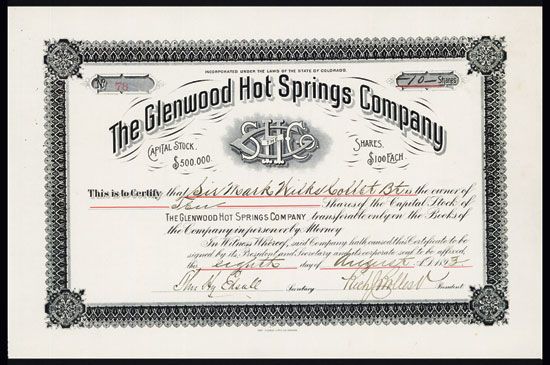 INCORPORATED UNDER THE LAWS OF THE STATE OF COLORADO.
No 78
10 Shares
The Glenwood Hot Springs Company
CAPITAL STOCK. $500.000.
SHARES. $100 EACH.
This is to Certify that Sir Mark Wilks Collet Bt. is the owner of
Ten Shares of the Capital Stock of
THE GLENWOOD HOT SPRINGS COMPANY transferable only on the Books of
the Company in person or by Attorney
In Witness Whereof, said Company hath caused this Certificate to be
signed by its President and Secretary and its corporate seal to be affixed,
this eighth day of August 1893
Secretary
President